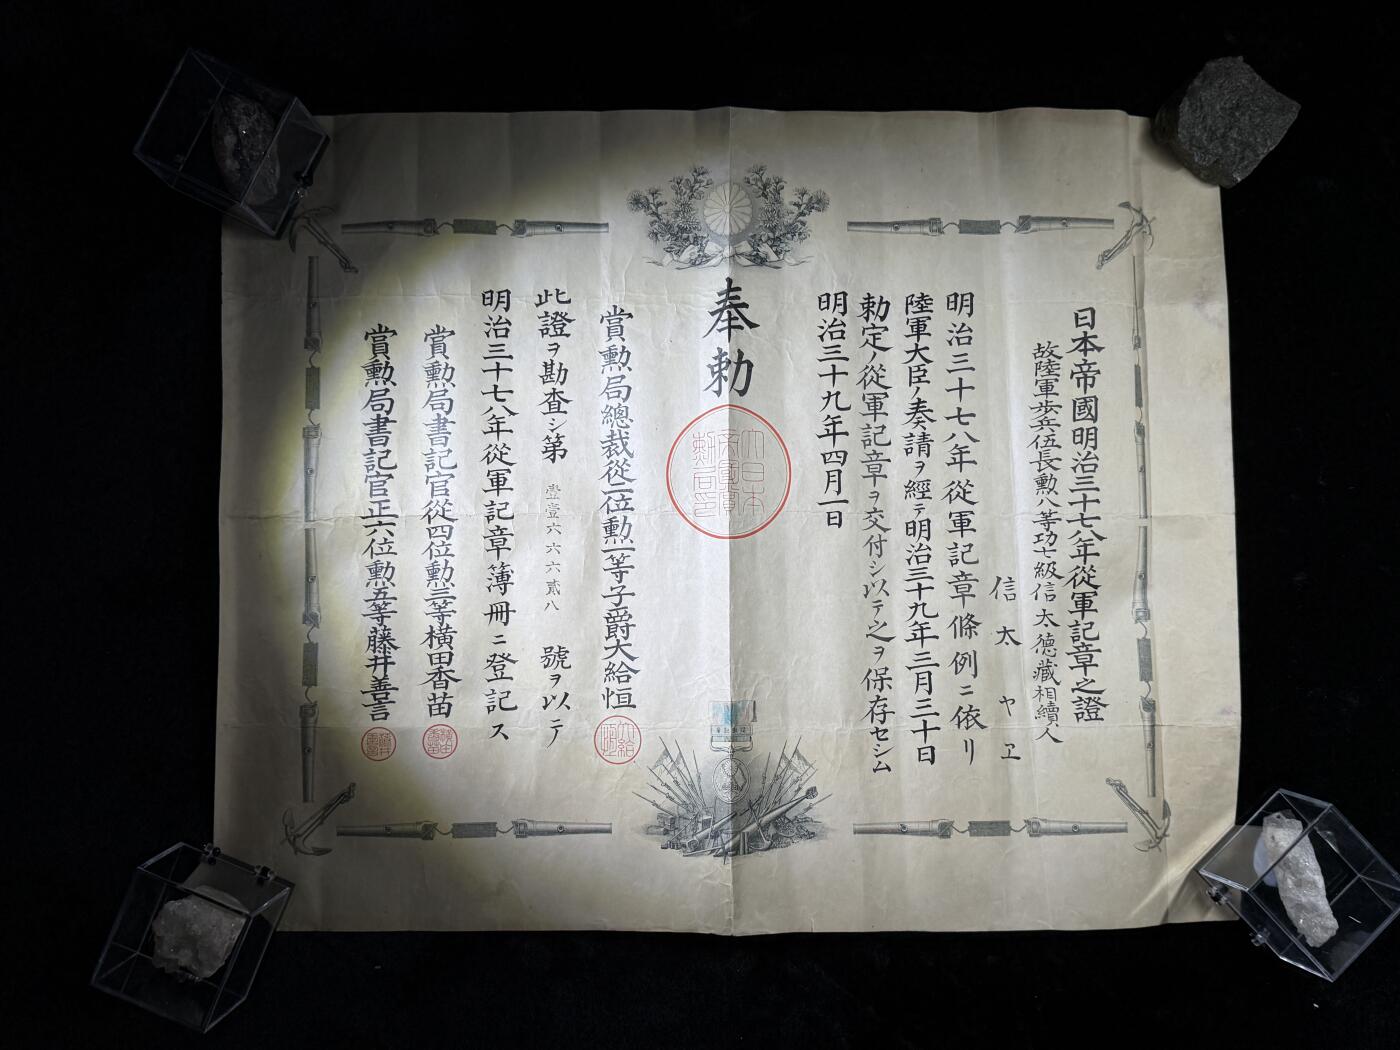 日本帝國明治三十七八年從軍記章之證
故陸軍歩兵伍長勲八等功七級信太德藏相續人
信太ヤヱ
明治三十七八年從軍記章條例ニ依リ
陸軍大臣ノ奏請ヲ經テ明治三十九年三月三十日
勅定ノ從軍記章ヲ交付シ以テ之ヲ保存セシム
明治三十九年四月一日
奉勅
大日本帝國賞勲局印
賞勲局總裁從二位勲一等子爵大給恒
大給恒
此證ヲ勘査シ第壹壹六六六貳八號ヲ以テ
明治三十七八年從軍記章簿冊ニ登記ス
賞勲局書記官從四位勲三等横田香苗
横田香苗
賞勲局書記官正六位勲五等藤井善言
藤井善言